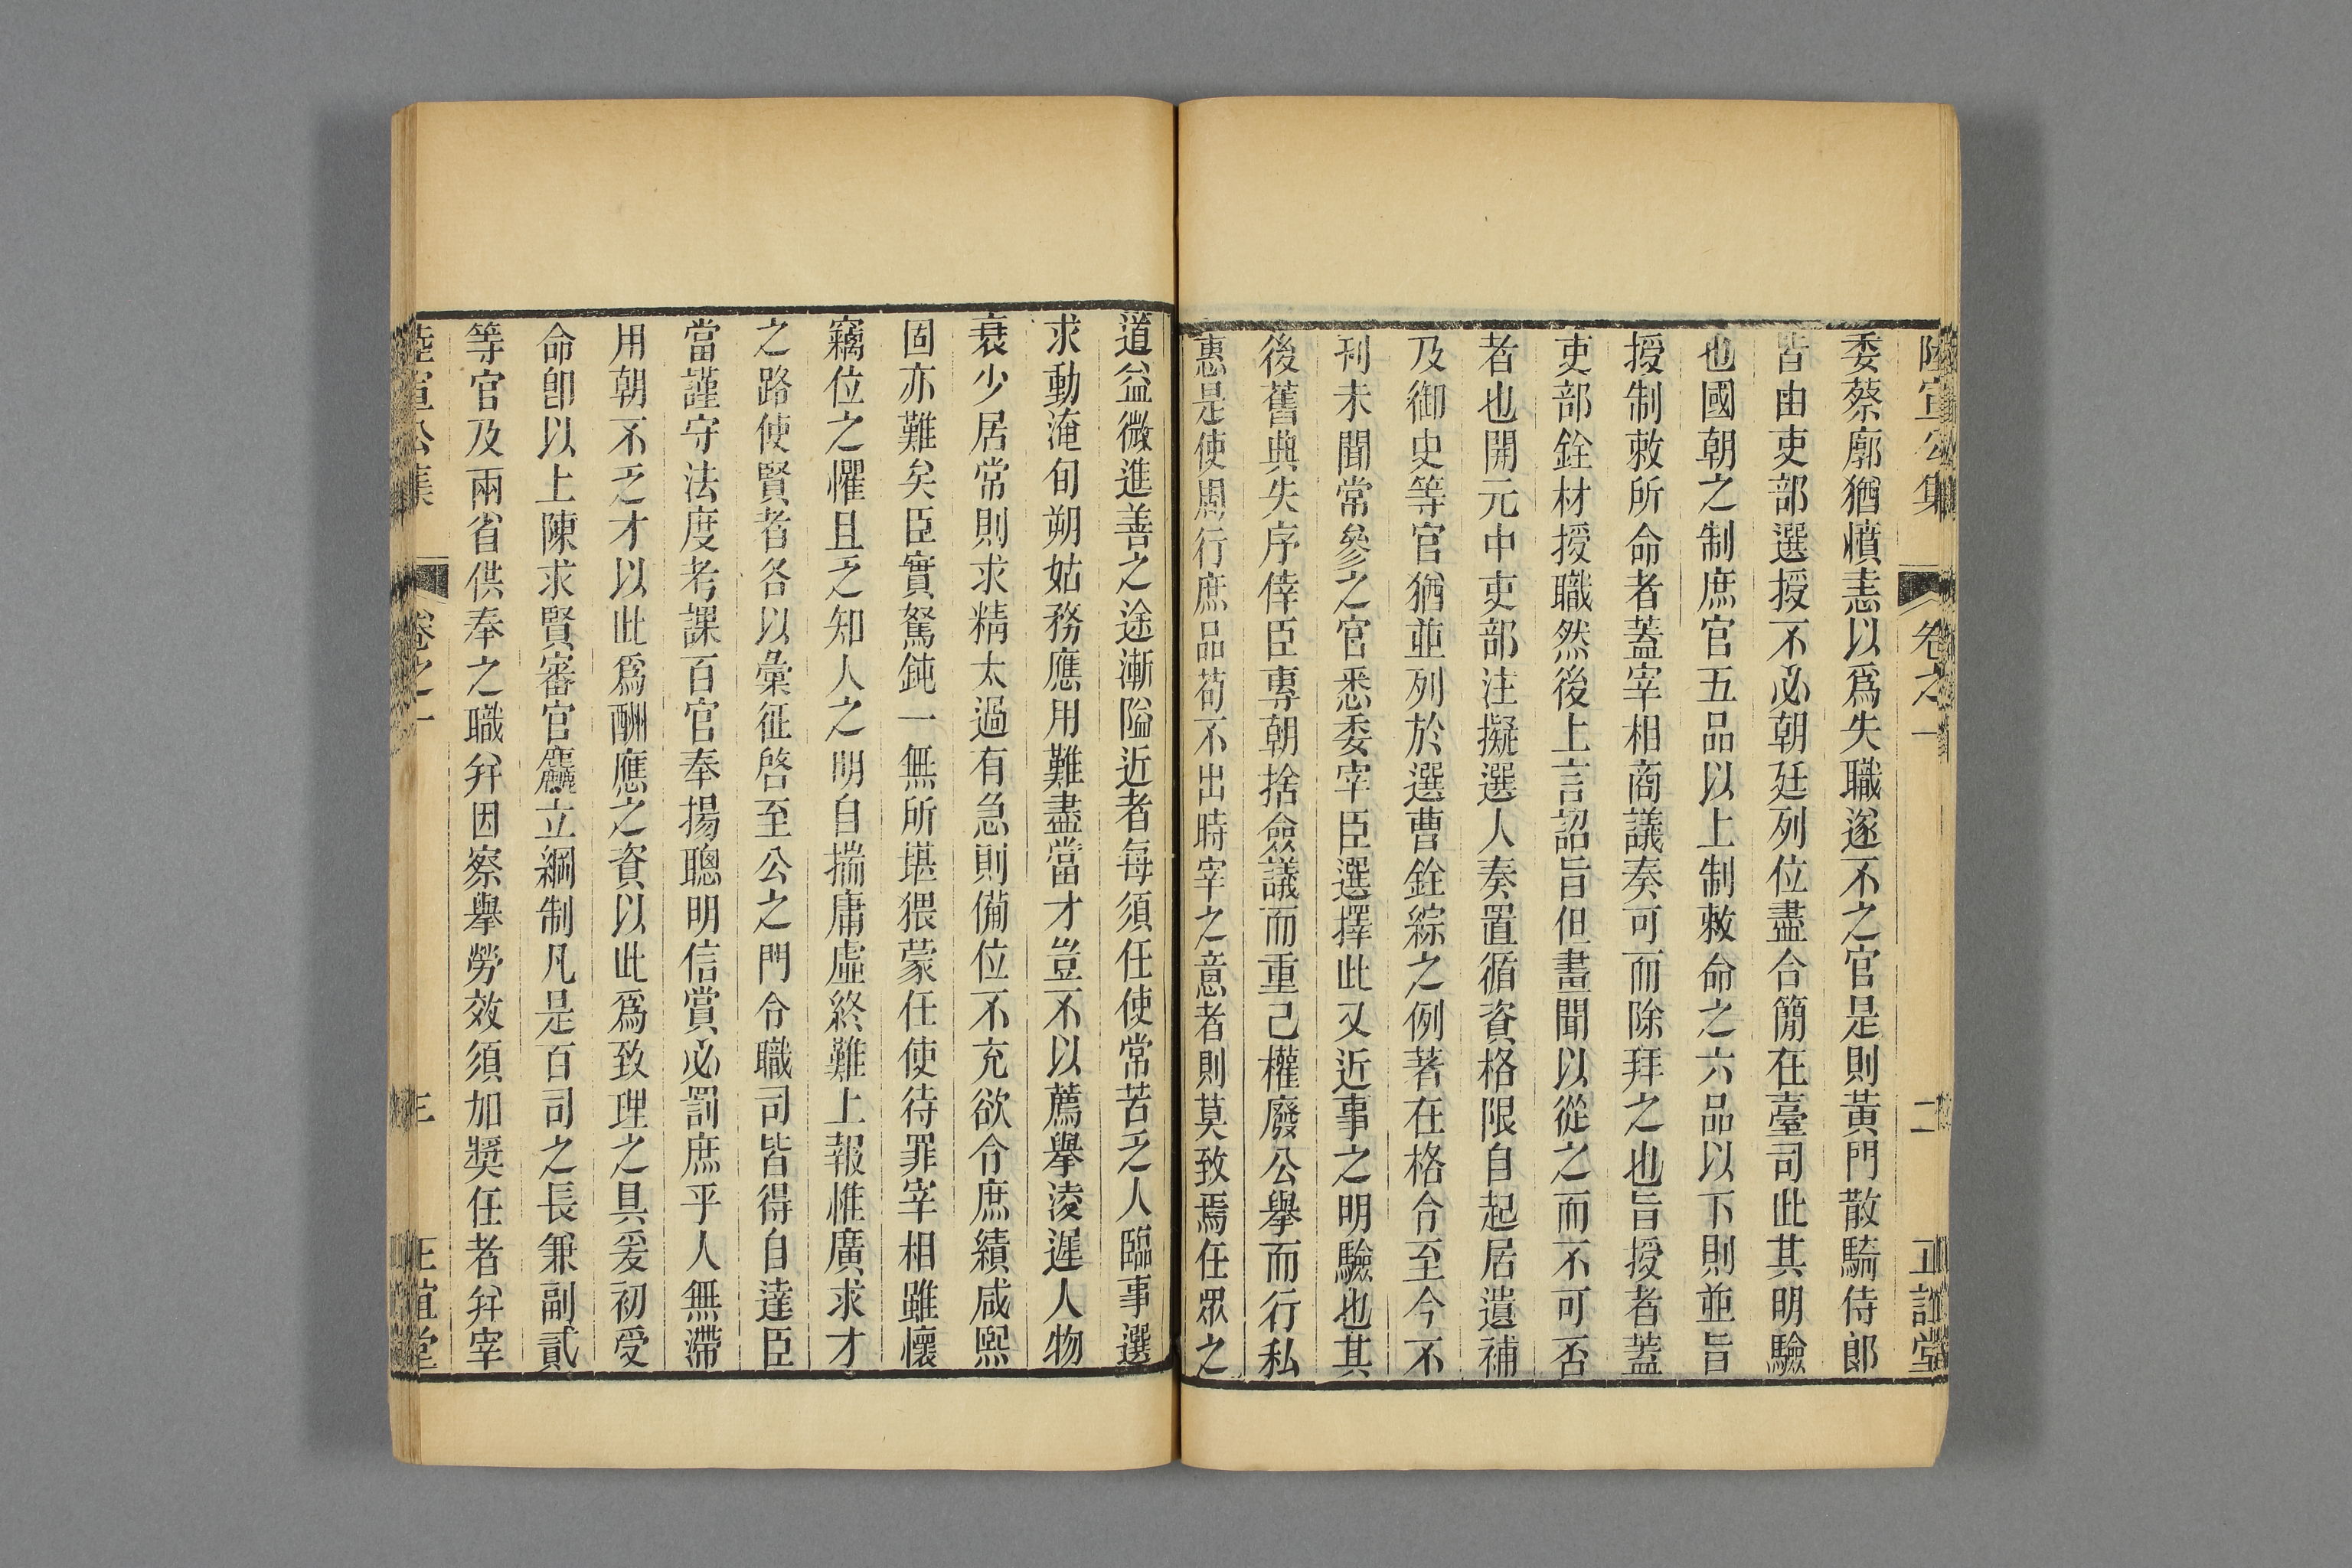 陸宣公集 卷之一 二 正誼堂
委蔡廓猶憤恚以爲失職遂不之官是則黃門散騎侍郎
皆由吏部選授不必朝廷列位盡合簡在臺司此其明驗
也國朝之制庶官五品以上制敕命之六品以下則並旨
授制敕所命者蓋宰相商議奏可而除拜之也旨授者蓋
吏部銓材授職然後上言詔旨但畫聞以從之而不可否
者也開元中吏部注擬選人奏置循資格限自起居遺補
及御史等官猶並列於選曹銓綜之例著在格令至今不
刊未聞常參之官悉委宰臣選擇此又近事之明驗也其
後舊典失序倖臣專朝捨僉議而重己權廢公舉而行私
惠是使周行庶品苟不出時宰之意者則莫致焉任眾之
道益微進善之途漸隘近者每須任使常苦乏人臨事選
求動淹旬朔姑務應用難盡當才豈不以薦舉淩遲人物
衰少居常則求精太過有急則備位不充欲令庶績咸熙
固亦難矣臣實駑鈍一無所堪猥蒙任使待罪宰相雖懷
竊位之懼且乏知人之明自揣庸虛終難上報惟廣求才
之路使賢者各以彙征啓至公之門令職司皆得自達臣
當謹守法度考課百官奉揚聰明信賞必罰庶乎人無滯
用朝不乏才以此爲酬應之資以此爲致理之具爰初受
命卽以上陳求賢審官麤立綱制凡是百司之長兼副貳
等官及兩省供奉之職幷因察舉勞效須加奬任者幷宰
陸宣公集 卷之一 三 正誼堂